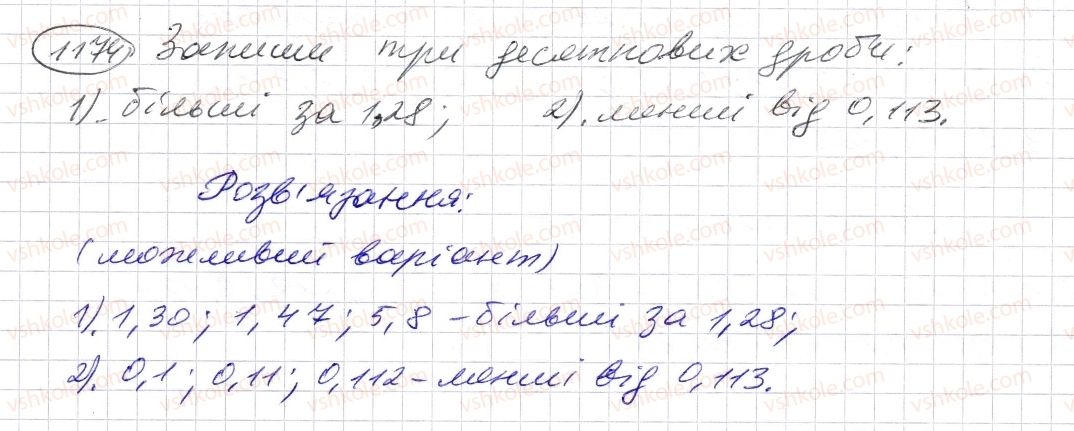 1174) Запиши три десяткових дроби:
1). більші за 1,28; 2). менші від 0,113.
Розв'язання:
(можливий варіант)
1). 1,30; 1,47; 5,8 – більші за 1,28;
2). 0,1; 0,11; 0,112 – менші від 0,113.